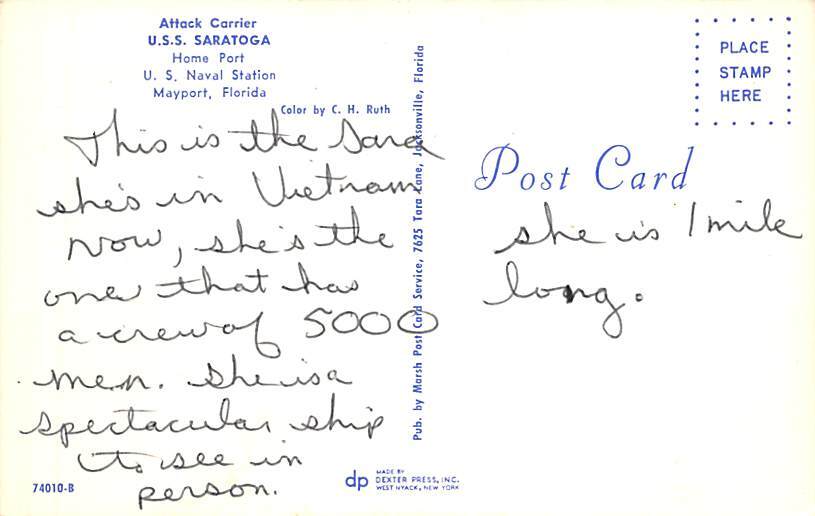 Attack Carrier
U.S.S. SARATOGA
Home Port
U. S. Naval Station
Mayport, Florida
Color by C. H. Ruth
This is the Sara
she's in Vietnam
now, she's the
one that has
a crew of 5000
men. She is a
spectacular ship
to see in
person.
74010-B
Pub. by Marsh Post Card Service, 7625 Tara Lane, Jacksonville, Florida
dp
MADE BY
DEXTER PRESS, INC.
WEST NYACK, NEW YORK
PLACE
STAMP
HERE
Post Card
she is 1 mile
long.